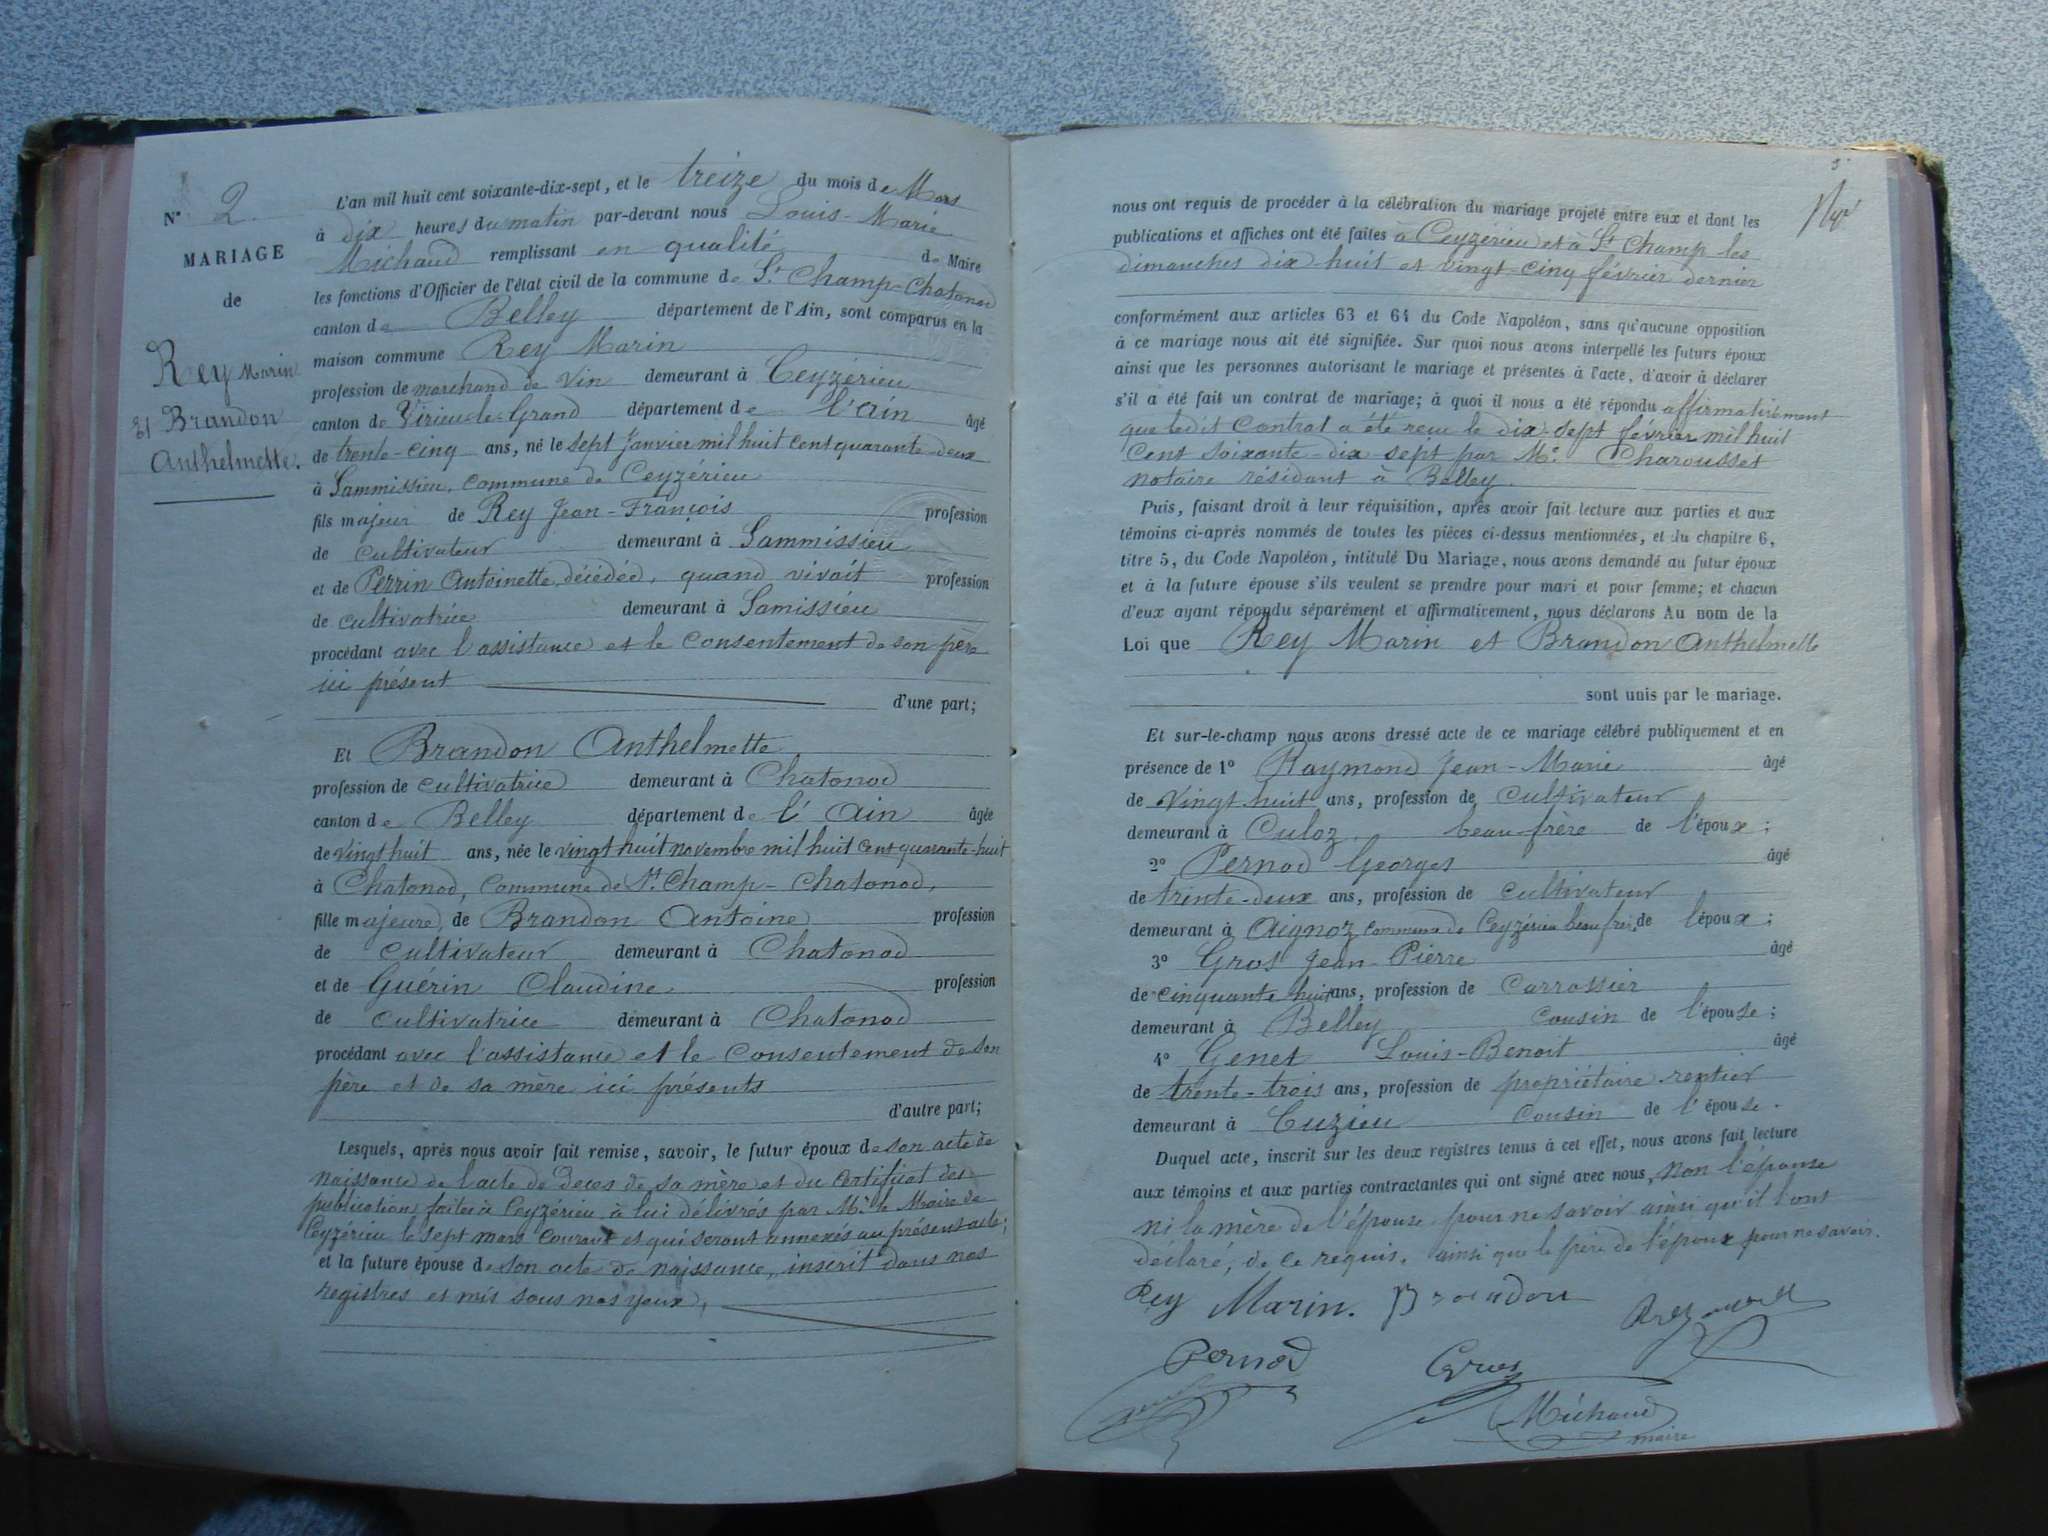 N° 2.
MARIAGE
de
Rey Marin
Et Brandon
Anthelmette.
L'an mil huit cent soixante-dix-sept, et le treize du mois de Mars
à dix heures du matin par-devant nous Louis-Marie
Michaud remplissant en qualité de Maire
les fonctions d'Officier de l'état civil de la commune de St Champ-Chatonod
canton de Belley département de l'Ain, sont comparus en la
maison commune Rey Marin
profession de marchand de vin demeurant à Ceyzérieu
canton de Virieu-le-Grand département de l'Ain âgé
de trente-cinq ans, né le sept Janvier mil huit cent quarante-deux
à Sammissieu, commune de Ceyzérieu
fils majeur de Rey Jean-François profession
de cultivateur demeurant à Sammissieu
et de Perrin Antoinette, décédée, quand vivait profession
de cultivatrice demeurant à Samissieu
procédant avec l'assistance et le consentement de son père
ici présent d'une part;
Et Brandon Anthelmette
profession de cultivatrice demeurant à Chatonod
canton de Belley département de l'Ain âgée
de vingt huit ans, née le vingt huit novembre mil huit cent quarante-huit
à Chatonod, commune de St Champ-Chatonod,
fille majeure, de Brandon Antoine profession
de cultivateur demeurant à Chatonod
et de Guérin Claudine profession
de cultivatrice demeurant à Chatonod
procédant avec l'assistance et le consentement de son
père et de sa mère ici présents
d'autre part;
Lesquels, après nous avoir fait remise, savoir, le futur époux de son acte de
naissance de l'acte de deces de sa mère et du certificat des
publications faites à Ceyzérieu à lui délivrés par Mr le Maire de
Ceyzérieu le sept mars courant et qui seront annexés au présent acte;
et la future épouse de son acte de naissance, inscrit dans nos
registres et mis sous nos yeux,
nous ont requis de procéder à la célébration du mariage projeté entre eux et dont les
publications et affiches ont été faites à Ceyzérieu et à St Champ les
dimanches dix huit et vingt-cinq février dernier
conformément aux articles 63 et 64 du Code Napoléon, sans qu'aucune opposition
à ce mariage nous ait été signifiée. Sur quoi nous avons interpellé les futurs époux
ainsi que les personnes autorisant le mariage et présentes à l'acte, d'avoir à déclarer
s'il a été fait un contrat de mariage; à quoi il nous a été répondu affirmativement
que ledit Contrat a été reçu le dix-sept février mil huit
Cent soixante-dix sept par Me Charousset
notaire résidant à Belley.
Puis, faisant droit à leur réquisition, après avoir fait lecture aux parties et aux
témoins ci-après nommés de toutes les pièces ci-dessus mentionnées, et du chapitre 6,
titre 5, du Code Napoléon, intitulé Du Mariage, nous avons demandé au futur époux
et à la future épouse s'ils veulent se prendre pour mari et pour femme; et chacun
d'eux ayant répondu séparément et affirmativement, nous déclarons Au nom de la
Loi que Rey Marin et Brandon Anthelmette
sont unis par le mariage.
Et sur-le-champ nous avons dressé acte de ce mariage célébré publiquement et en
présence de 1° Raymond Jean-Marie âgé
de vingt huit ans, profession de cultivateur
demeurant à Culoz, beau-frère de l'époux;
2° Pernod Georges âgé
de trente-deux ans, profession de cultivateur
demeurant à Aignoz commune de Ceyzérieu beau frère de l'époux;
3° Gros Jean-Pierre âgé
de cinquante huit ans, profession de Carrossier
demeurant à Belley Cousin de l'épouse;
4° Genet Louis-Benoit âgé
de trente-trois ans, profession de propriétaire rentier
demeurant à Cuzieu Cousin de l'épouse.
Duquel acte, inscrit sur les deux registres tenus à cet effet, nous avons fait lecture
aux témoins et aux parties contractantes qui ont signé avec nous, non l'épouse
ni la mère de l'épouse pour ne savoir ainsi qu'il l'ont
déclaré, de ce requis. ainsi que le père de l'époux pour ne savoir.
Rey Marin. Brandon Raymond
Pernod Gros
Michaud
maire